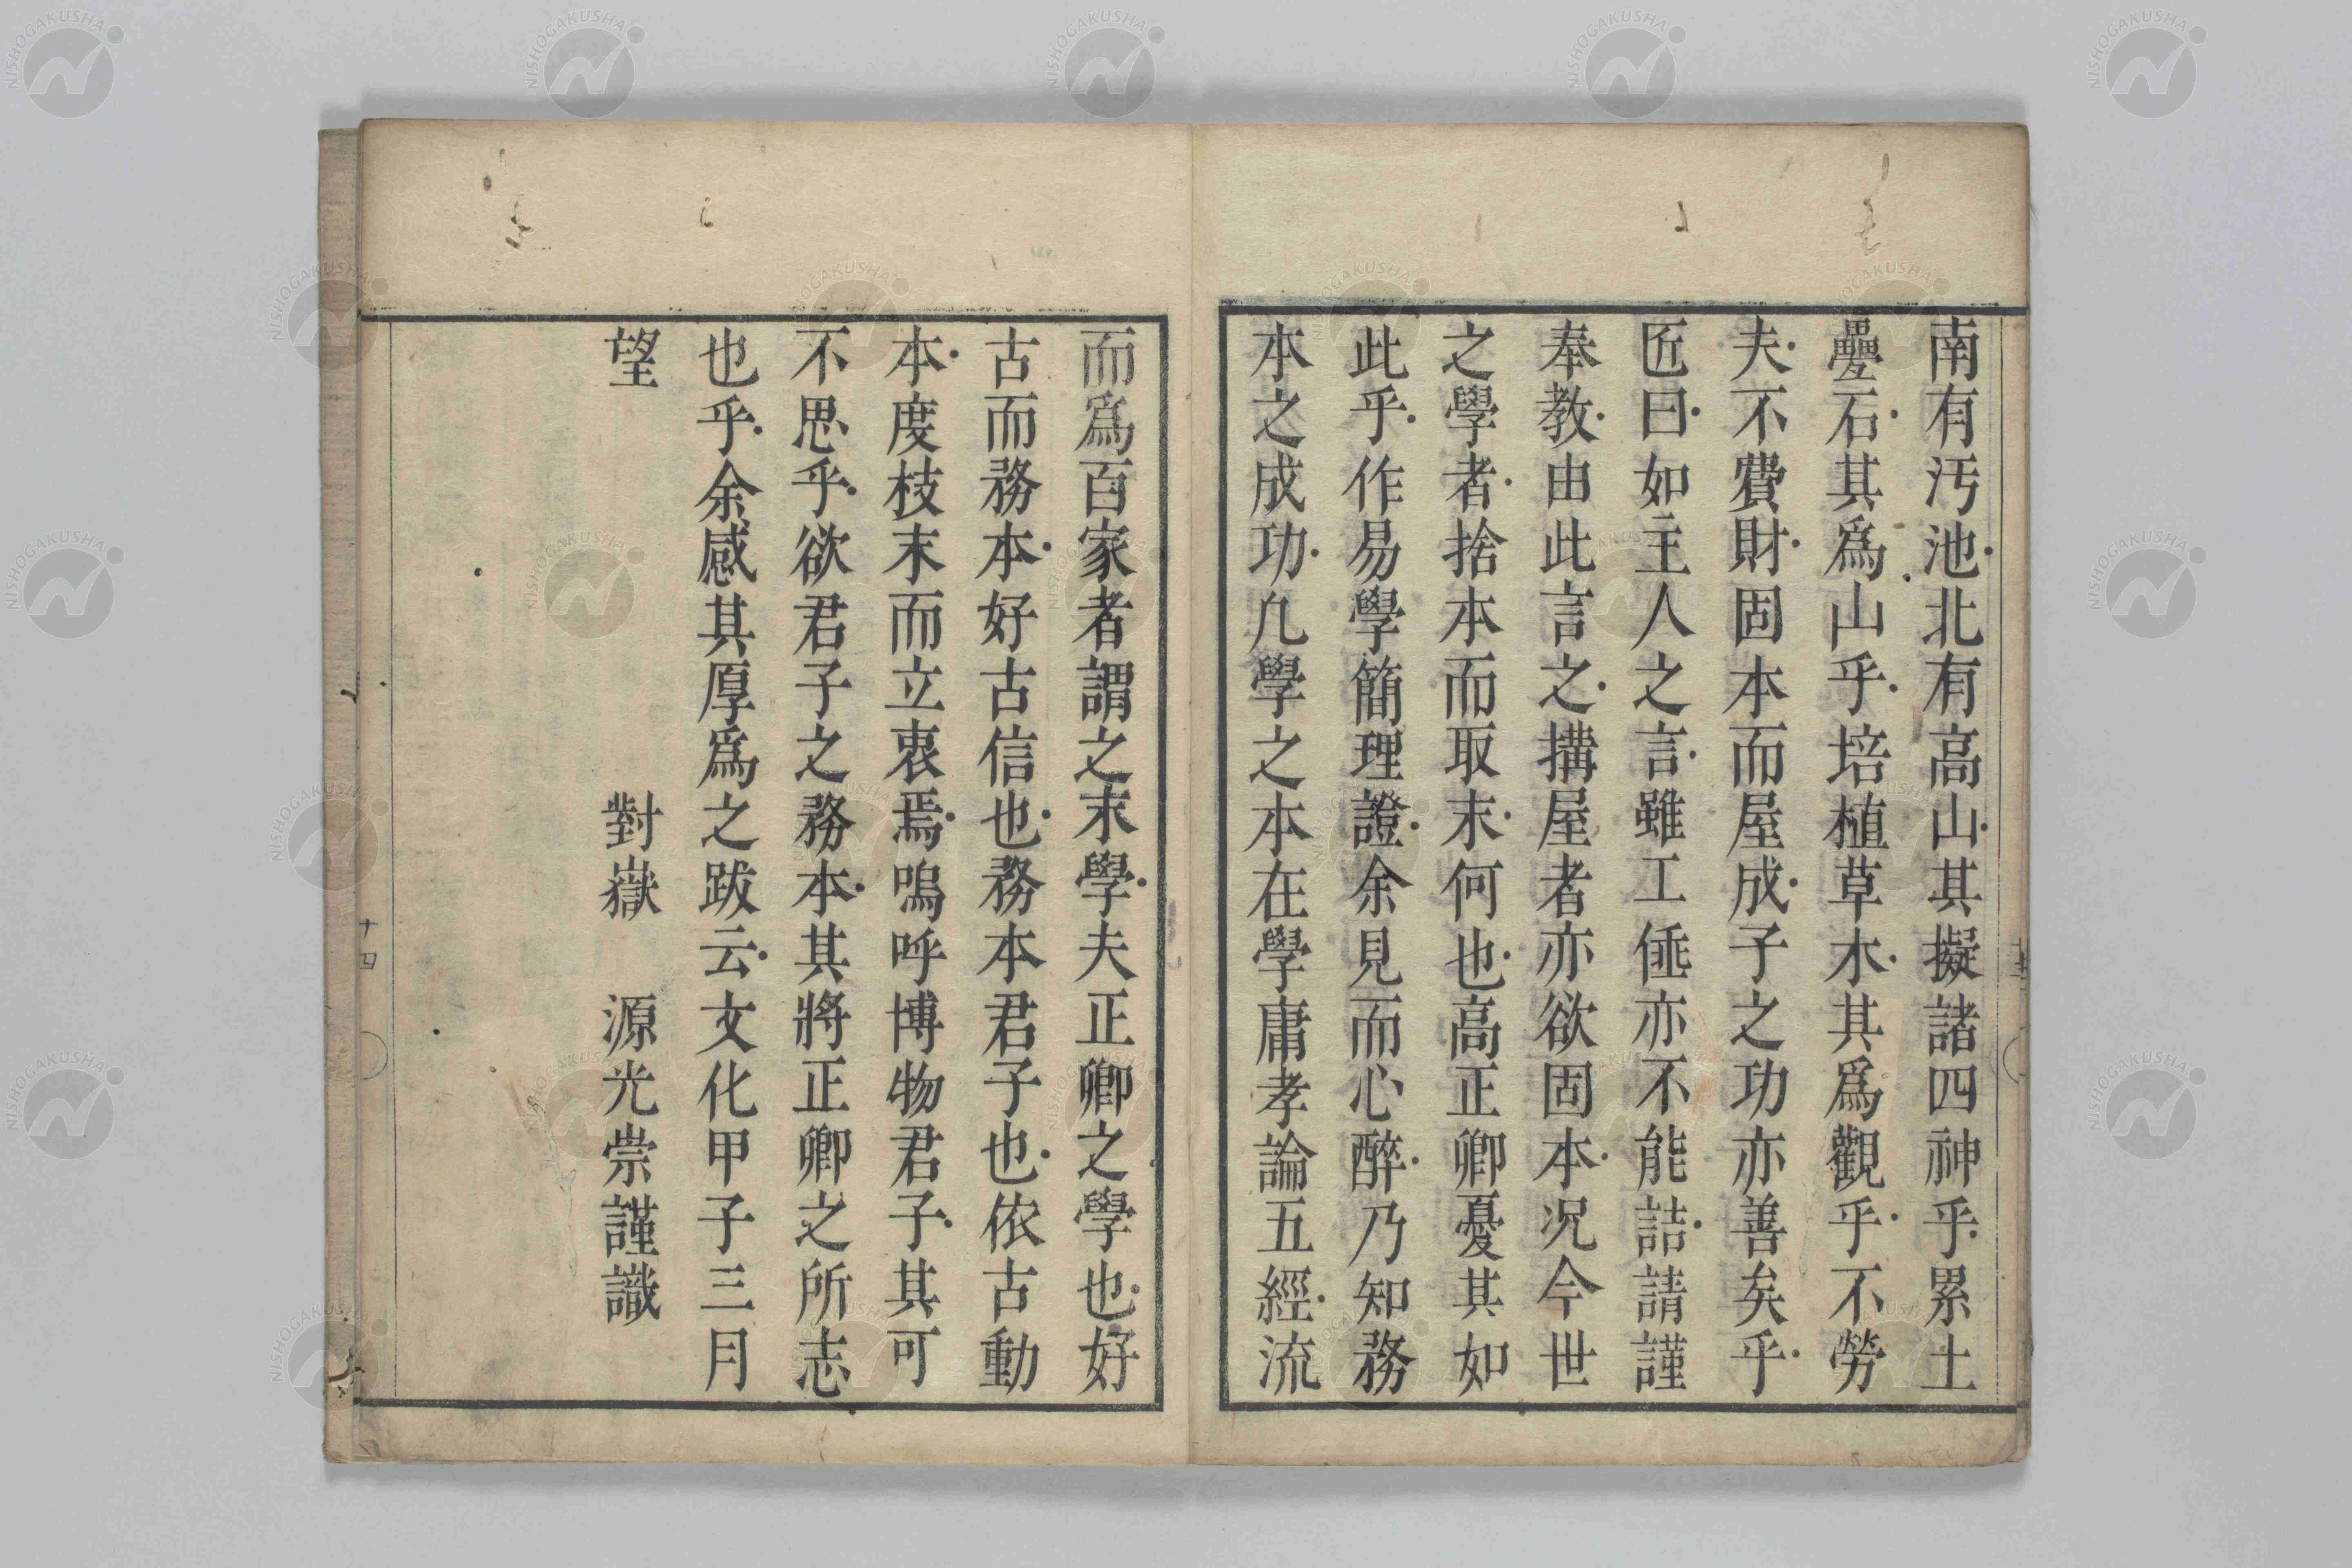 南有汚池北有高山其擬諸四神乎累土
壘石其爲山乎培植草木其爲觀乎不勞
夫不費財固本而屋成子之功亦善矣乎
匠曰如主人之言雖工倕亦不能詰請謹
奉教由此言之搆屋者亦欲固本况今世
之學者捨本而取末何也高正卿憂其如
此乎作易學簡理證余見而心醉乃知務
本之成功凢學之本在學庸孝論五經流
而爲百家者謂之末學夫正卿之學也好
古而務本好古信也務本君子也依古動
本度枝末而立衷焉嗚呼博物君子其可
不思乎欲君子之務本其將正卿之所志
也乎余感其厚爲之跋云文化甲子三月
望 對嶽 源光崇謹識
十四
NISHOGAKUSHA